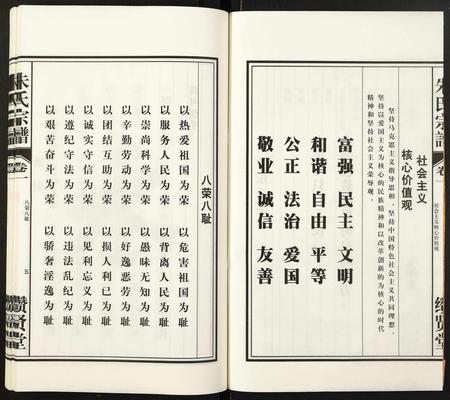 朱氏宗譜
卷一
社会主义核心价值观
續贤堂
社会主义
核心价值观
坚持马克思主义指导思想，坚持中国特色社会主义共同理想，
坚持以爱国主义为核心的民族精神和以改革创新的为核心的时代
精神和坚持社会主义荣辱观。
富强 民主 文明
和谐 自由 平等
公正 法治 爱国
敬业 诚信 友善
八荣八耻
以热爱祖国为荣 以危害祖国为耻
以服务人民为荣 以背离人民为耻
以崇尚科学为荣 以愚昧无知为耻
以辛勤劳动为荣 以好逸恶劳为耻
以团结互助为荣 以损人利己为耻
以诚实守信为荣 以见利忘义为耻
以遵纪守法为荣 以违法乱纪为耻
以艰苦奋斗为荣 以骄奢淫逸为耻
朱氏宗譜
卷一
八荣八耻
五
續贤堂